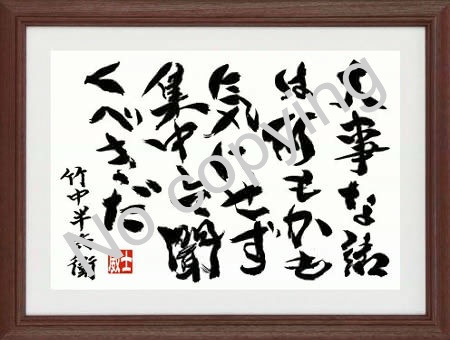 大事な話
は何もかも
気にせず
集中して聞
くべきだ
竹中半兵衛
No copying